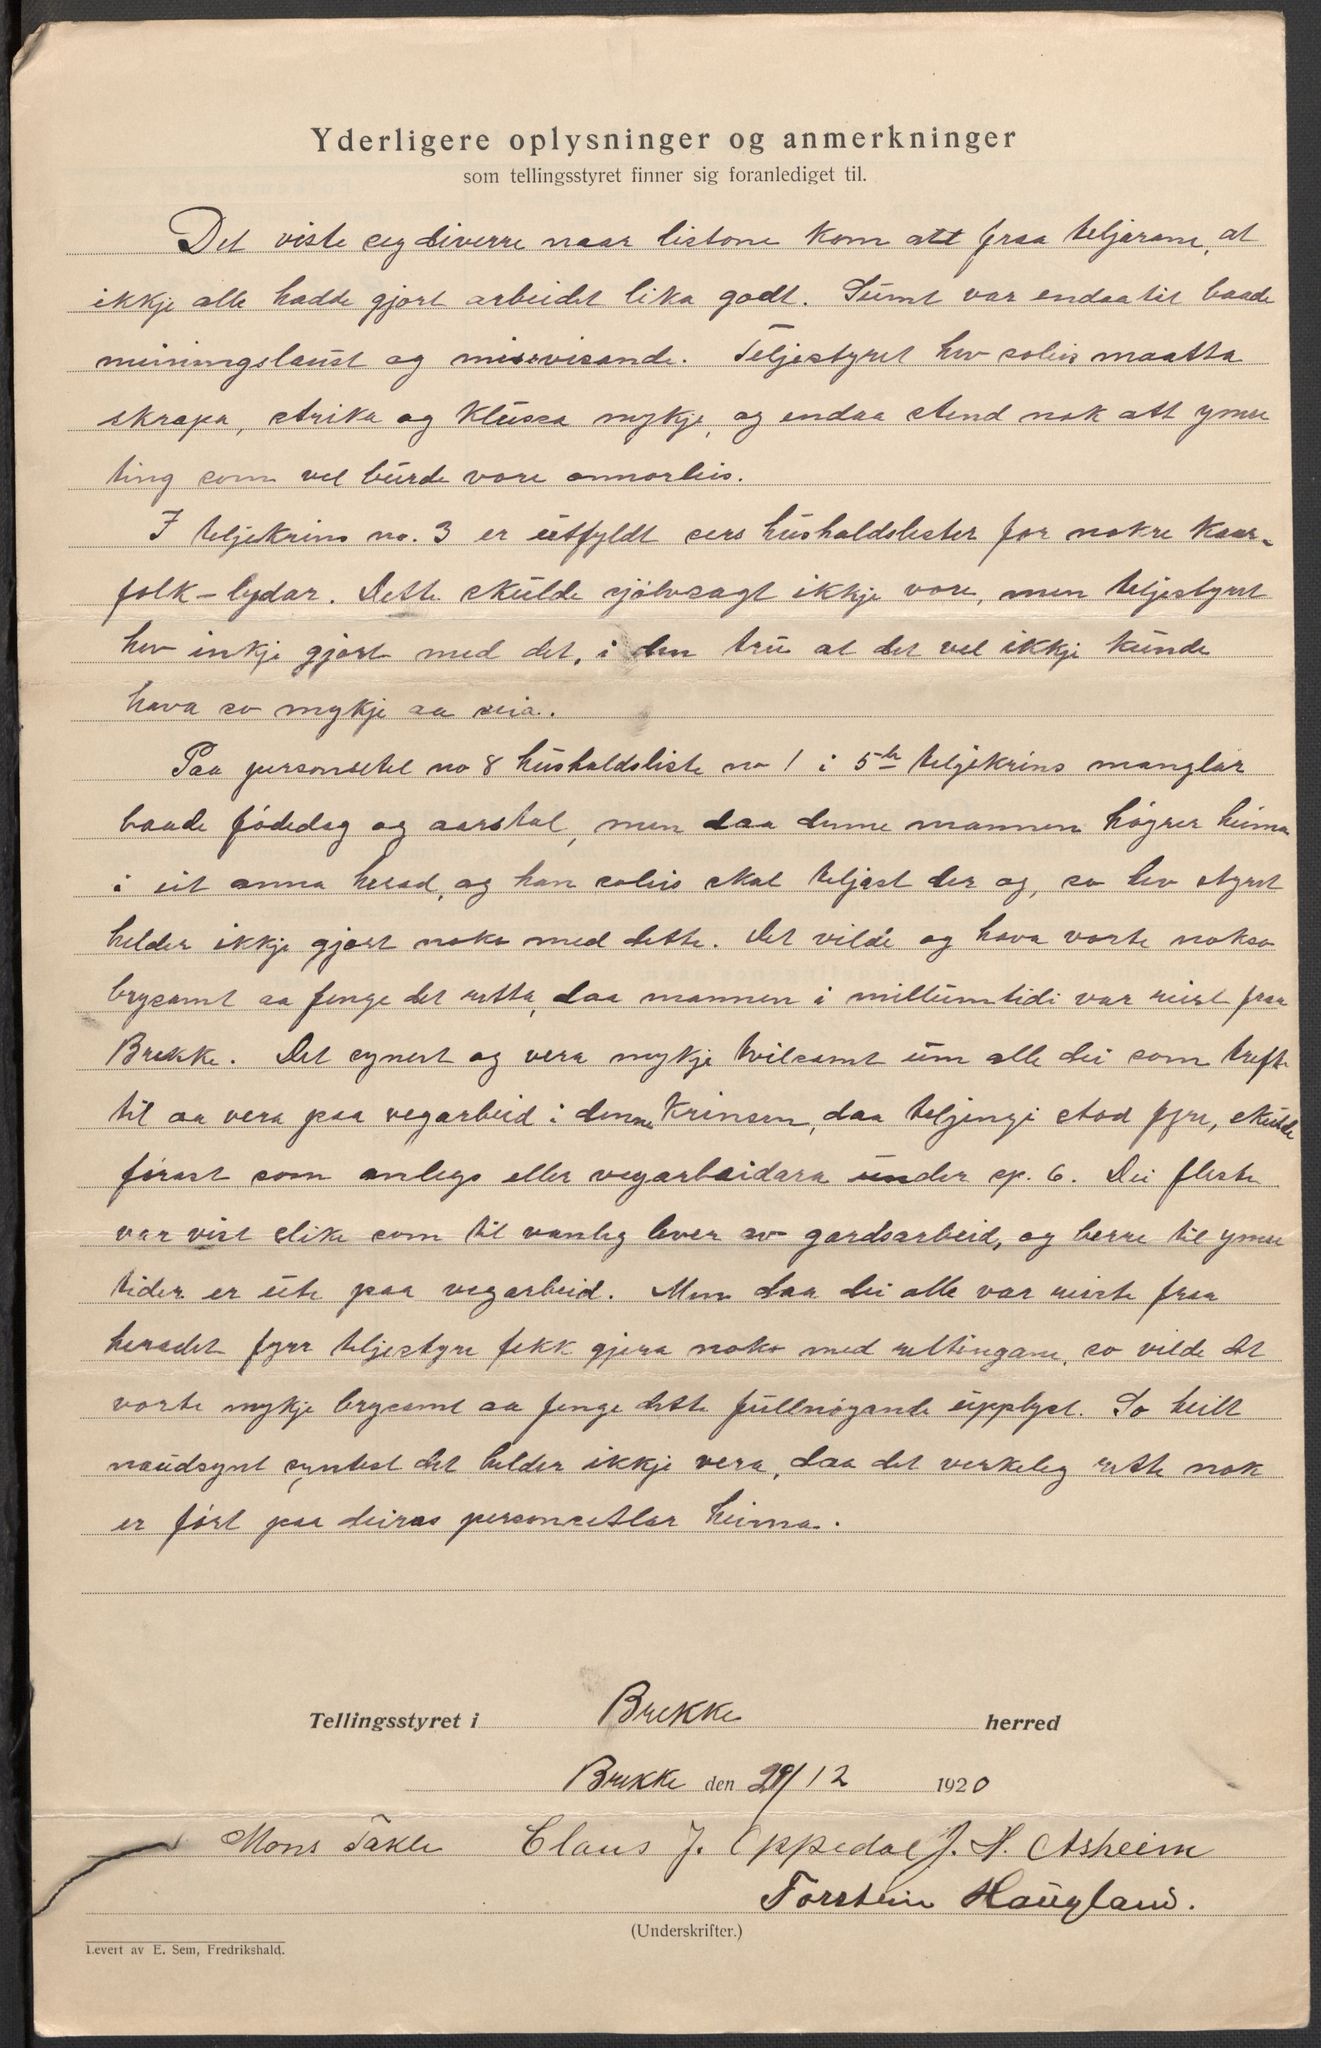 Yderligere oplysninger og anmerkninger
som tellingsstyret finner sig foranlediget til.
Det viste seg diverre naar listone kom att fraa teljarane, at
ikkje alle hadde gjort arbeidet lika godt. Sumt var endaatil baade
meiningslaust og misvisande. Teljestyret hev soleis maatta
skrapa, strika og klussa mykje, og endaa stend nok att ymse
ting som vel burde vore annorleis.
I teljekrins no. 3 er utfyldt sers husholdslister for nokre kaar-
folk-lydar. Dette skulde sjølvsagt ikkje vore, men teljestyret
hev inkje gjort med det, i den tru at det vel ikkje kunde
hava so mykje aa seia.
Paa personsetel no 8 husholdsliste no 1 i 5te teljekrins manglar
baade fødedag og aarstal, men daa denne mannen høyrer heima
i eit anna herad, og han soleis skal teljast der og, so hev styret
helder ikkje gjort noko med dette. Det vilde og hava vorte nokso
brysamt aa fenge det retta, daa mannen i millumtidi var reist fraa
Brekke. Det synest og vera mykje tvilsamt um alle dei som trefte
til aa vera paa vegarbeid i denne krinsen, daa teljingi stod fyre, skulde
førast som anlegs eller vegarbeidara under sp. 6. Dei fleste
var vist slike som til vanleg lever av gardsarbeid, og berre til ymse
tider er ute paa vegarbeid. Men daa dei alle var reiste fraa
heradet fyrr teljestyre fekk gjera noko med rettingane, so vilde det
vorte mykje brysamt aa fenge dette fullnøgande upplyst. So heilt
naudsynt syntest det helder ikkje vera, daa det verkeleg rette nok
er ført paa deiras personsetlar heima.
Tellingsstyret i Brekke herred
Brekke den 29/12 1920
Mons Takle Claus J. Oppedal J. H. Asheim
Torstein Haugland.
(Underskrifter.)
Levert av E. Sem, Fredrikshald.